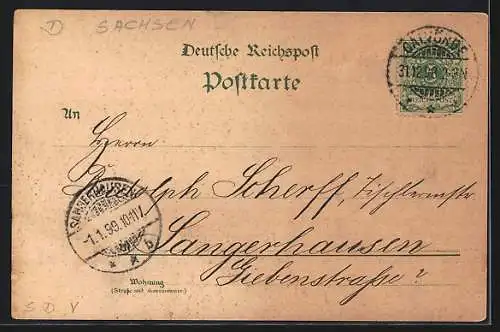 D SACHSEN
Deutsche Reichspost
Postkarte
31.12.98. 2-3N
An
Herrn
Rudolph Scherff, Tischlermstr.
SANGERHAUSEN
-1.1.99. 10-11V.
b
Sangerhausen
Wohnung
(Straße und Hausnummer)
Giebenstraße ?
S D V